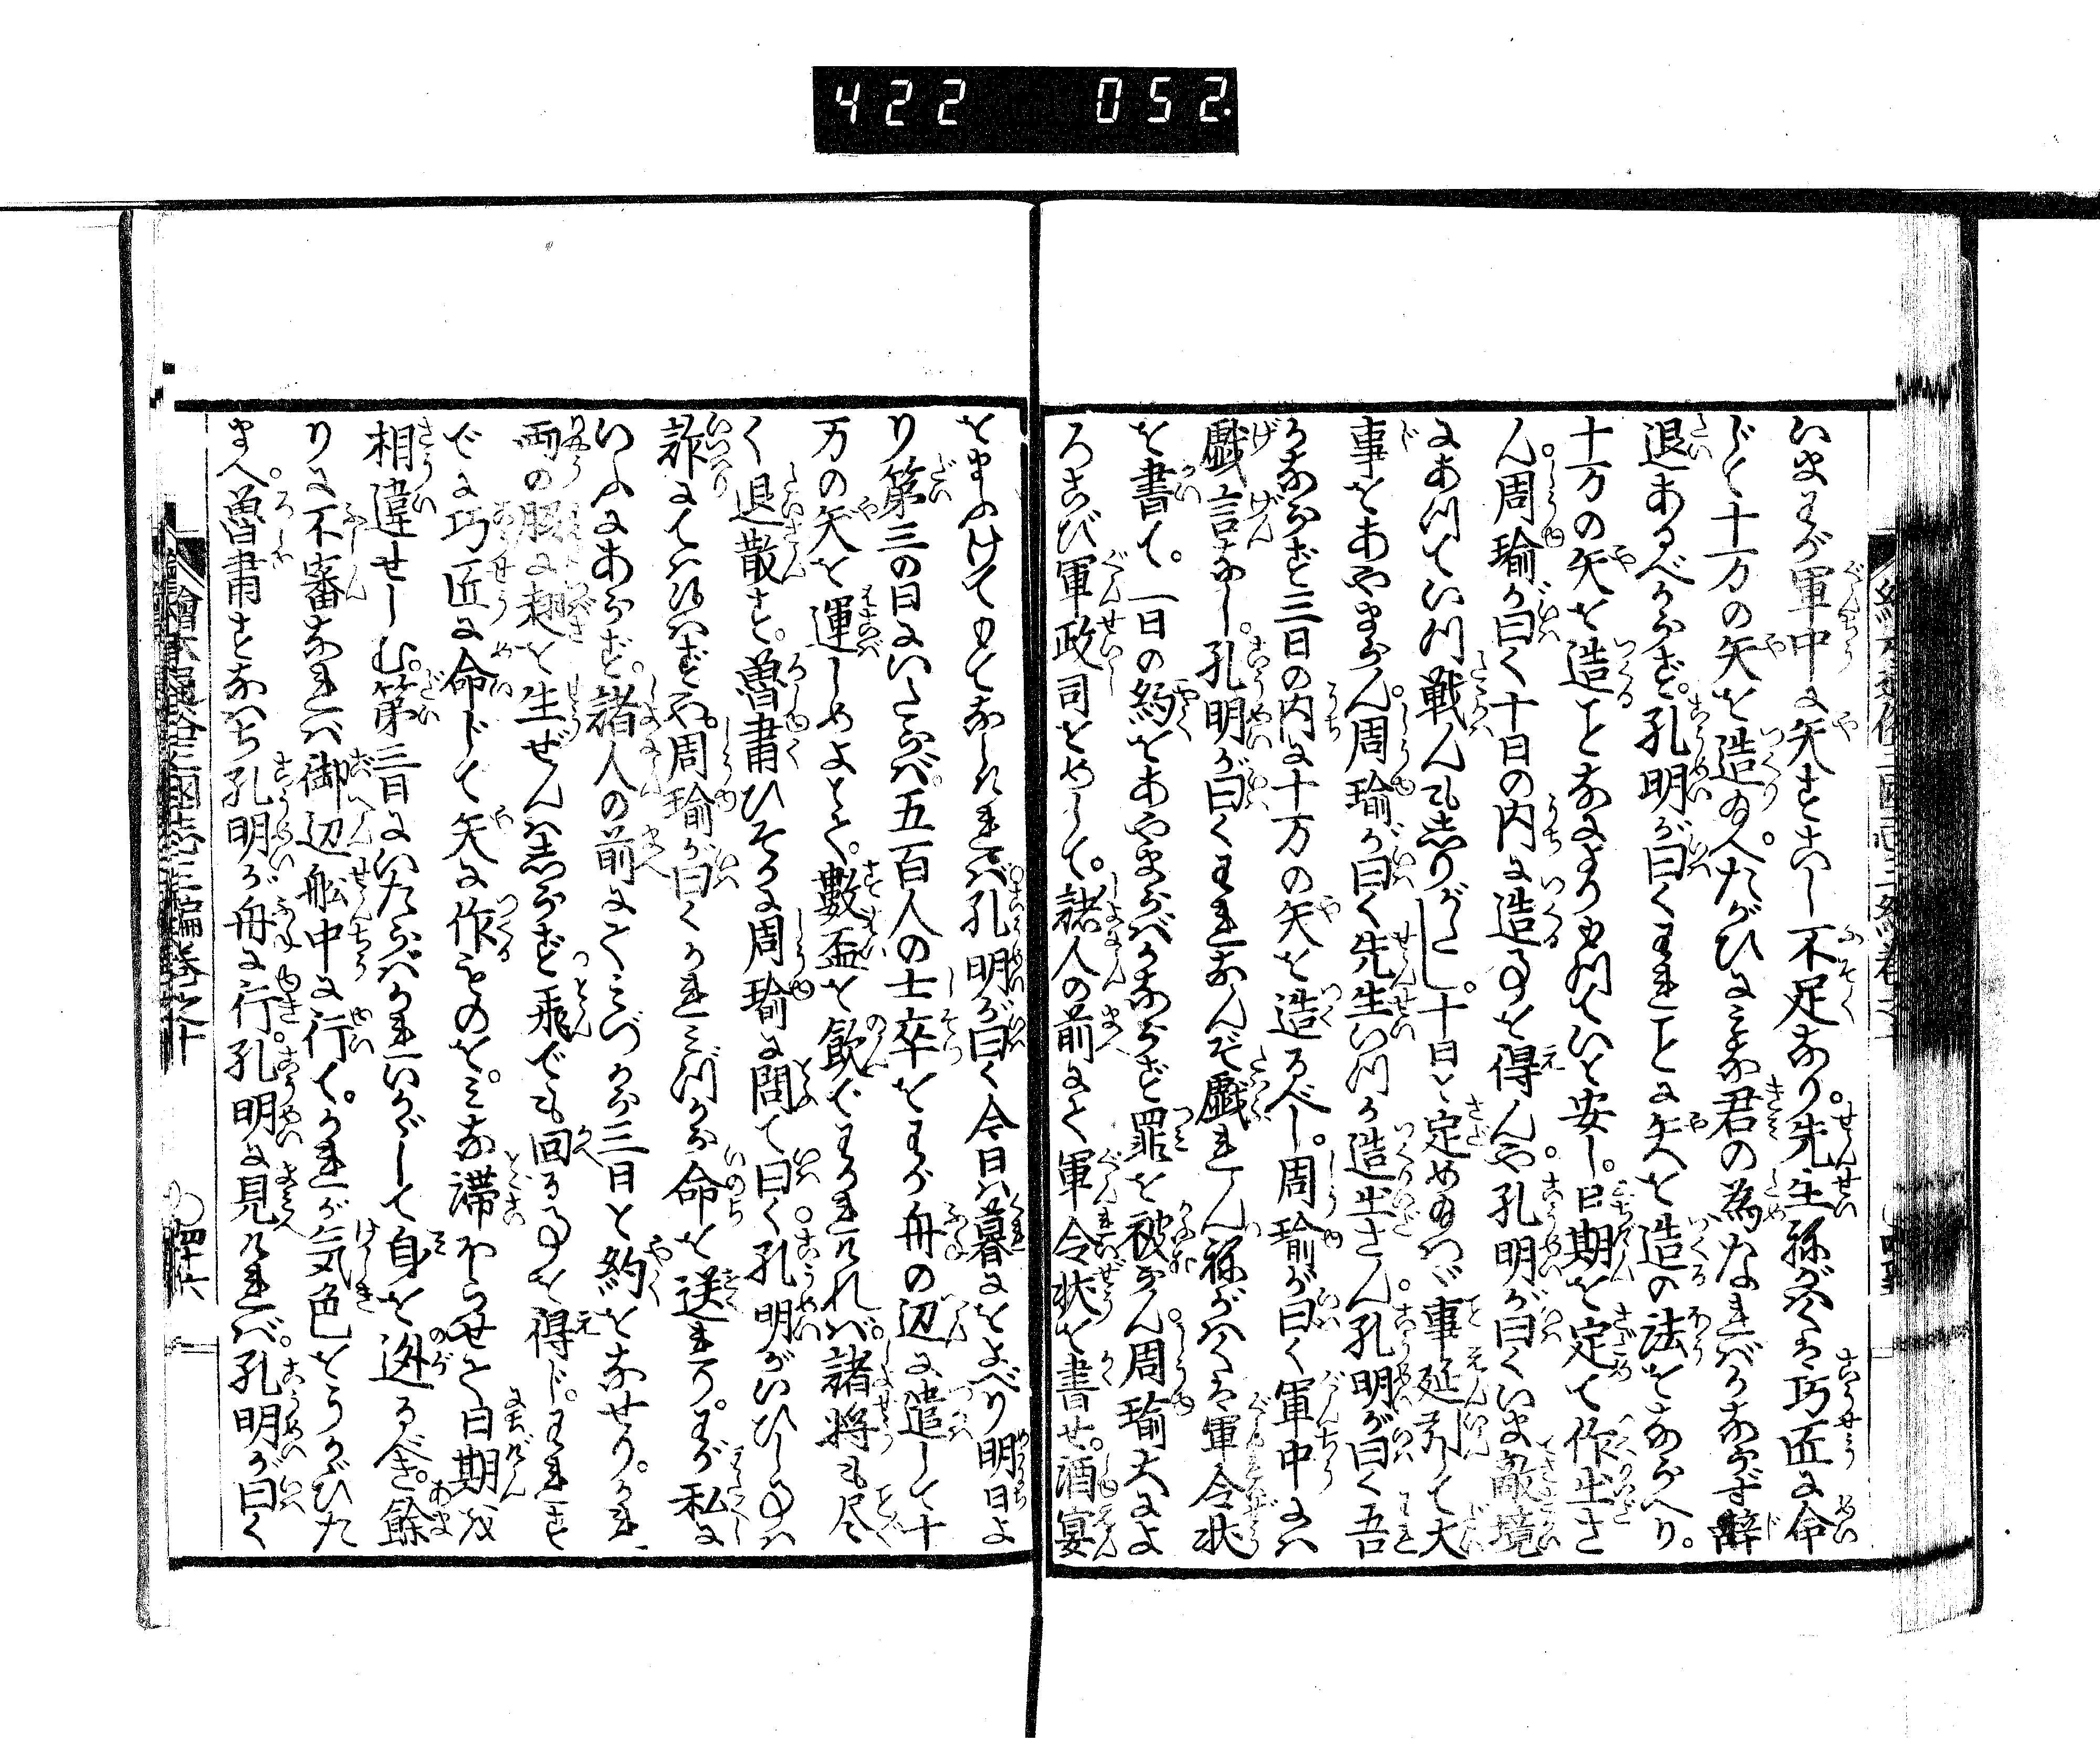 422 052.
いまわが軍中に矢すこし不足なり。先生ねがはくは巧匠に命
じて十万の矢を造り給へ。たがひにみな君の為なればかならず辞
退あるべからず。孔明が曰くわれことに矢を造るの法をならへり。
十万の矢を造ることなによりもつていと安し。日期を定て作出さ
ん。周瑜が曰く十日の内に造る事を得んや。孔明が曰くいま敵境
にあつていつ戦んも志りがたし。十日と定め給はゞ事延引して大
事をあやまらん。周瑜が曰く先生いつか造出さん。孔明が曰く吾
かならず三日の内に十万の矢を造るべし。周瑜が曰く軍中には
戯言なし。孔明が曰くわれなんぞ戯れん。祢がはくは軍令状
を書て。一日の約をあやまらばかならず罪を被らん。周瑜大によ
ろこび軍政司をめして。諸人の前にて軍令状を書せ。酒宴
をまふけてもてなしければ。孔明が曰く今日は暮におよべり明日よ
り第三の日にいたらば。五百人の士卒をわが舟の辺に遣して十
万の矢を運しめよとて。数盃を飲でわかれければ。諸将も尽
く退散す。魯粛ひそかに周瑜に問て曰く。孔明がいひし事は
詐にては候はずや。周瑜が曰くかれみづから命を送れり。わが私に
いふにあらず。諸人の前にてみづから三日と約をなせり。かれ
両の脇に翅を生ぜんは志らず飛でも回る事を得じ。われす
でに巧匠に命じて矢に作るものを。みな滞おらせて日期を
相違せしむ。第三日にいたらばかれいかゞして身を迯るべき。餘
りに不審なれば御辺舩中に行て。かれが気色をうかゞひた
まへ。魯粛すなはち孔明が舟に行。孔明に見ければ。孔明が曰く
繪本通俗三國志三編巻之十
四十六